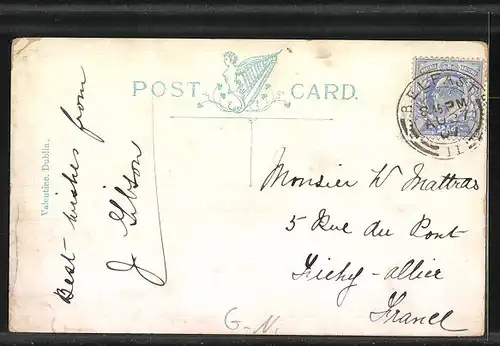 POST CARD.
BELFAST
8.15 PM
AU 27
07
11
Valentine, Dublin.
Best wishes from
J. Gibson
Monsieur W Mattras
5 Rue du Pont
Vichy-allier
France
G-N.